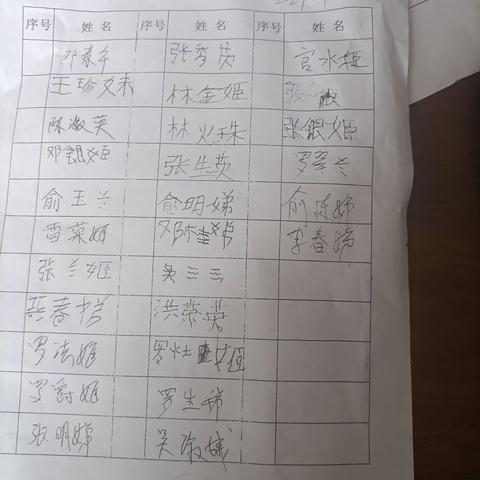 序号 姓名 序号 姓名 序号 姓名
张秀英 宫水姬
王珍妹 林金姬 张
陈淑英 林火珠 张银姬
邓银姬 张生英 罗翠兰
俞玉兰 俞明娣 俞 娣
雷菜姬 邓桂娣 李春娣
张兰姬 吴三三
春 洪荣英
罗法姬 罗灶姬
罗爵姬 罗生
张明娣 吴淑